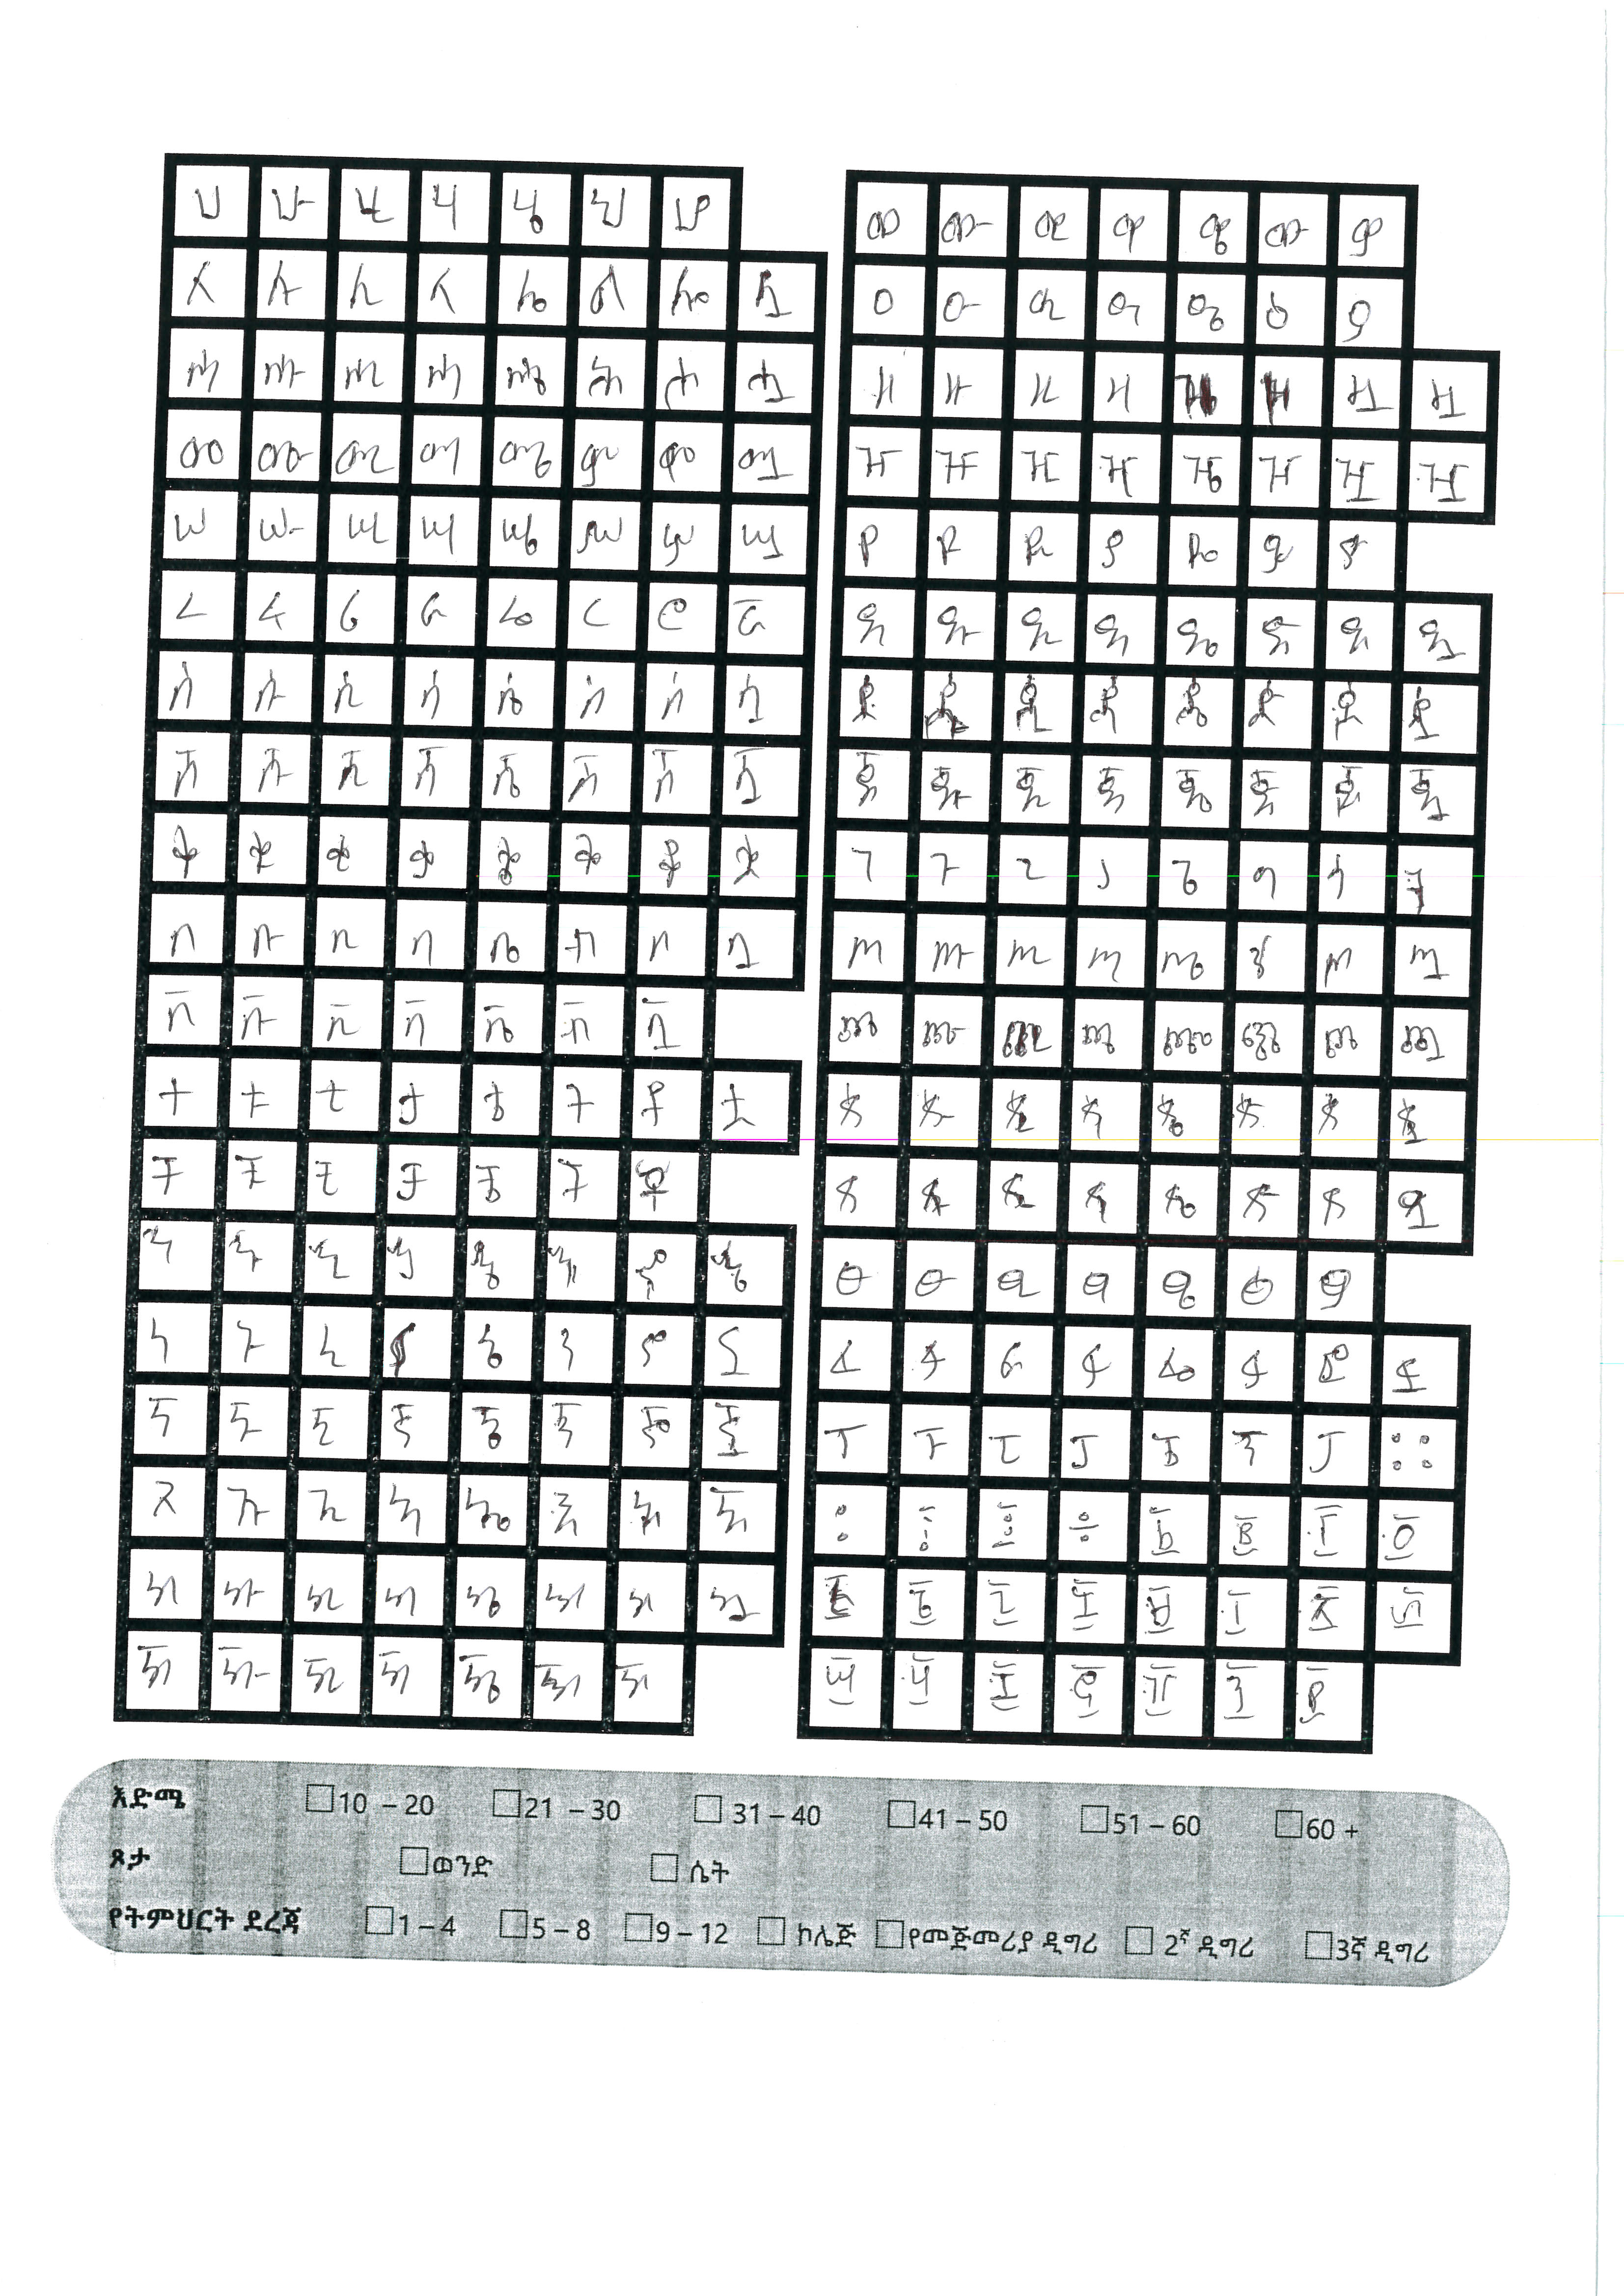 ሀ ሁ ሂ ሃ ሄ ህ ሆ
ለ ሉ ሊ ላ ሌ ል ሎ ሏ
ሐ ሑ ሒ ሓ ሔ ሕ ሖ ሗ
መ ሙ ሚ ማ ሜ ም ሞ ሟ
ሠ ሡ ሢ ሣ ሤ ሥ ሦ ሧ
ረ ሩ ሪ ራ ሬ ር ሮ ሯ
ሰ ሱ ሲ ሳ ሴ ስ ሶ ሷ
ሸ ሹ ሺ ሻ ሼ ሽ ሾ ሿ
ቀ ቁ ቂ ቃ ቄ ቅ ቆ ቋ
በ ቡ ቢ ባ ቤ ብ ቦ ቧ
ቨ ቩ ቪ ቫ ቬ ቭ ቯ
ተ ቱ ቲ ታ ቴ ት ቶ ቷ
ቸ ቹ ቺ ቻ ቼ ች ቾ
ኀ ኁ ኂ ኃ ኄ ኅ ኆ ኋ
ነ ኑ ኒ ና ኔ ን ኖ ኗ
ኘ ኙ ኚ ኛ ኜ ኝ ኞ ኟ
አ ኡ ኢ ኣ ኤ እ ኦ ኧ
ከ ኩ ኪ ካ ኬ ክ ኮ ኳ
ኸ ኹ ኺ ኻ ኼ ኽ ኾ
ወ ዉ ዊ ዋ ዌ ው ዎ
ዐ ዑ ዒ ዓ ዔ ዕ ዖ
ዘ ዙ ዚ ዛ ዜ ዝ ዞ ዟ
ዠ ዡ ዢ ዣ ዤ ዥ ዦ ዧ
የ ዩ ዪ ያ ዬ ይ ዮ
ደ ዱ ዲ ዳ ዴ ድ ዶ ዷ
ዸ ዹ ዺ ዻ ዼ ዽ ዾ ዿ
ጀ ጁ ጂ ጃ ጄ ጅ ጆ ጇ
ገ ጉ ጊ ጋ ጌ ግ ጎ ጓ
ጠ ጡ ጢ ጣ ጤ ጥ ጦ ጧ
ጨ ጩ ጪ ጫ ጬ ጭ ጮ ጯ
ጰ ጱ ጲ ጳ ጴ ጵ ጶ ጷ
ጸ ጹ ጺ ጻ ጼ ጽ ጾ ጿ
ፀ ፁ ፂ ፃ ፄ ፅ ፆ
ፈ ፉ ፊ ፋ ፌ ፍ ፎ ፏ
ፐ ፑ ፒ ፓ ፔ ፕ ፖ ።
፡ ፩ ፪ ፫ ፬
፭ ፮ ፯ ፰ ፱ ፲ ፳ ፴
፵ ፶ ፷ ፸ ፹ ፺ ፻
እድሜ 10 – 20 21 – 30 31 – 40 41 – 50 51 – 60 60 +
ጾታ ወንድ ሴት
የትምህርት ደረጃ 1 – 4 5 – 8 9 – 12 ኮሌጅ የመጅመሪያ ዲግሪ 2ኛ ዲግሪ 3ኛ ዲግሪ